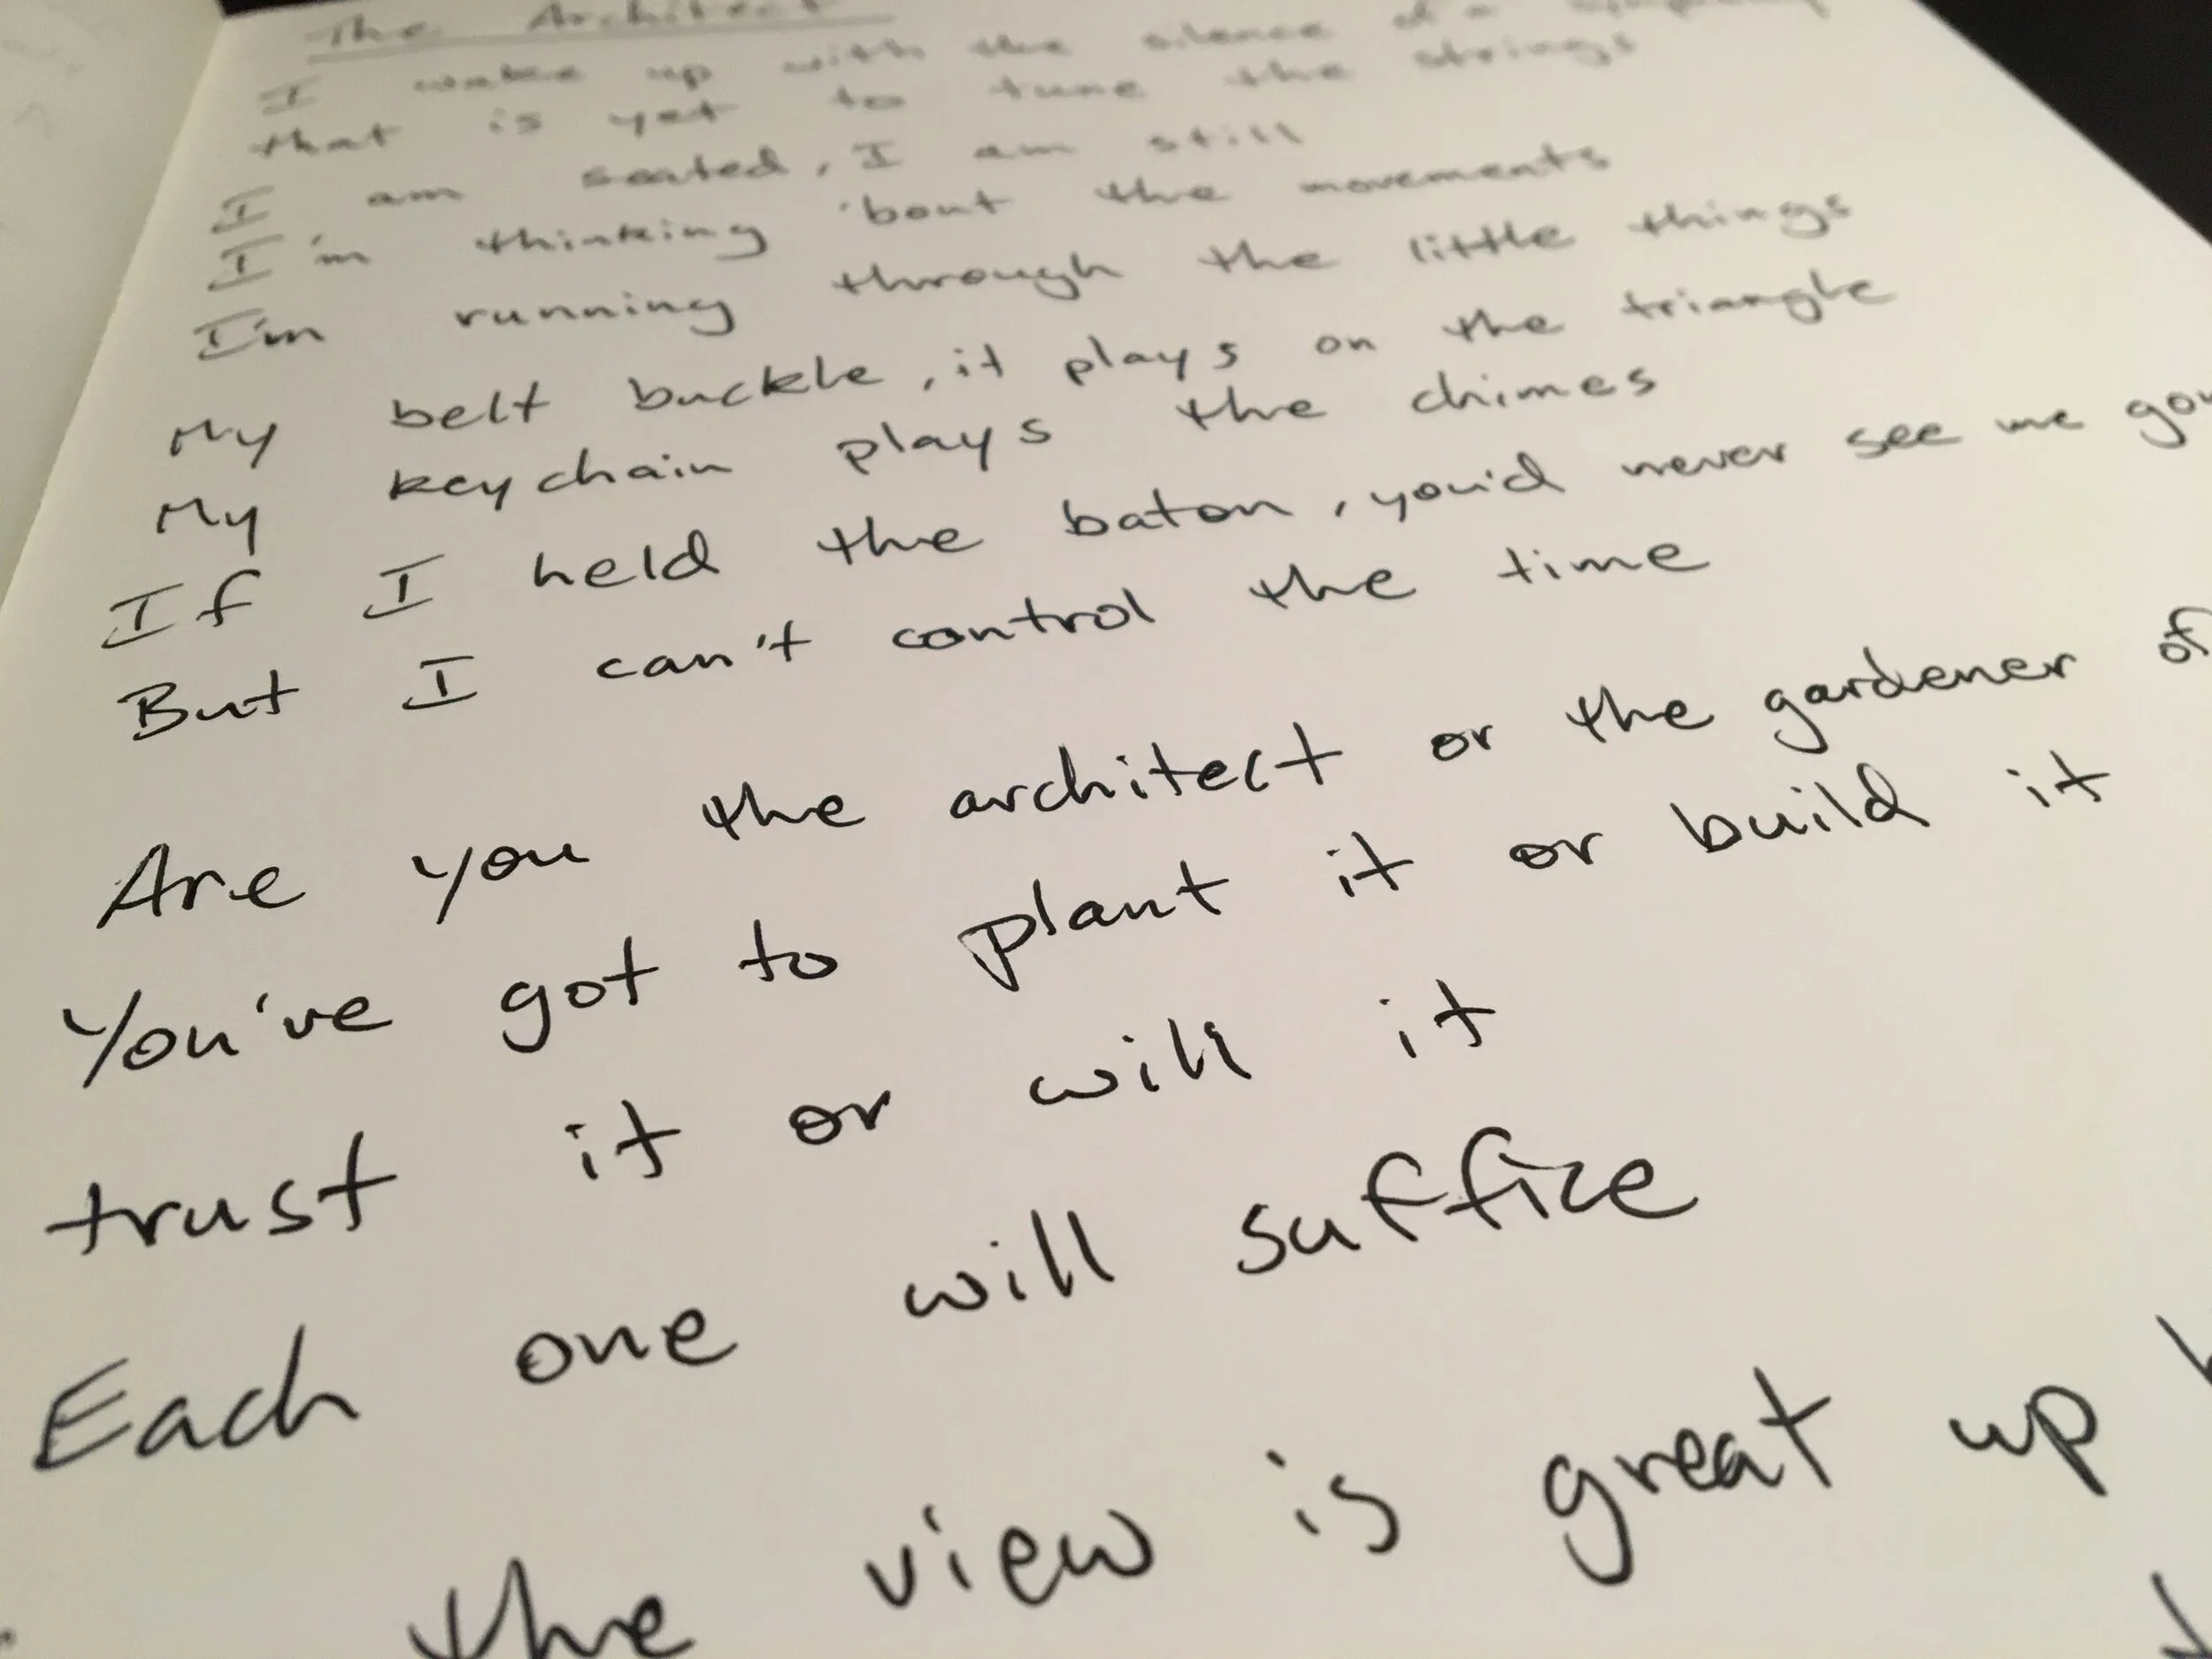 The Architect
I wake up with the silence of a symphony
that is yet to tune the strings
I am seated, I am still
I'm thinking 'bout the movements
I'm running through the little things
My belt buckle, it plays on the triangle
My keychain plays the chimes
If I held the baton, you'd never see me
But I can't control the time
Are you the architect or the gardener of
You've got to plant it or build it
trust it or will it
Each one will suffice
the view is great up